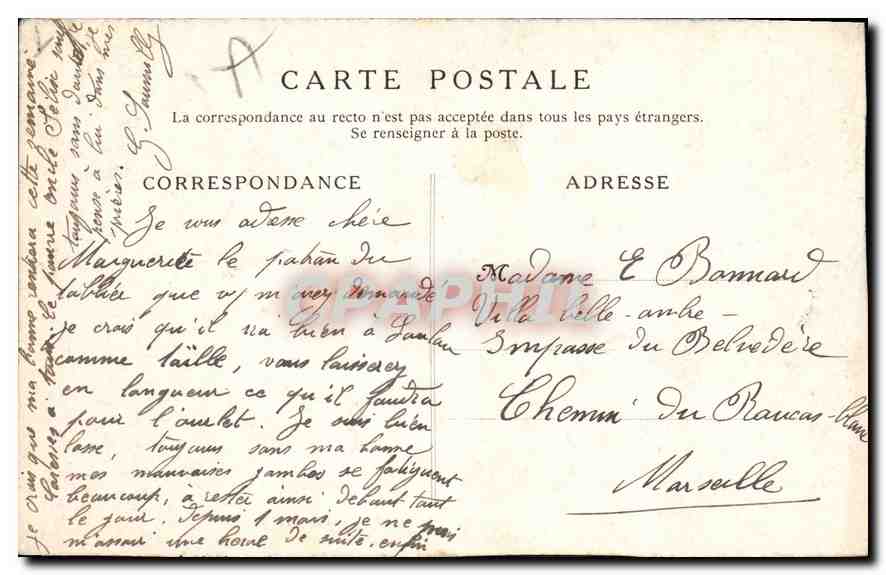 CARTE POSTALE
La correspondance au recto n'est pas acceptée dans tous les pays étrangers.
Se renseigner à la poste.
CORRESPONDANCE
ADRESSE
Je vous adresse chère
Marguerite le patron du
tablier que v/ m'avez demandé
je crois qu'il ira bien à
comme taille, vous laisserez
en longueur ce qu'il faudra
pour l'ourlet. Je suis bien
lasse, toujours sans ma bonne
mes mauvaises jambes se fatiguent
beaucoup, à rester ainsi debout tant
le jour. depuis 1 mois, je ne puis
m'assoir une heure de suite. enfin
je crois que ma bonne rentrera cette semaine.
Caresses à tous. Le pauvre oncle
toujours sans doute. Je
pense à lui dans mes
prières.
Madame E Bonnard
Villa belle-ombre -
Impasse du Belvedère
Chemin du Roucas-blanc
Marseille
CPAPHIL